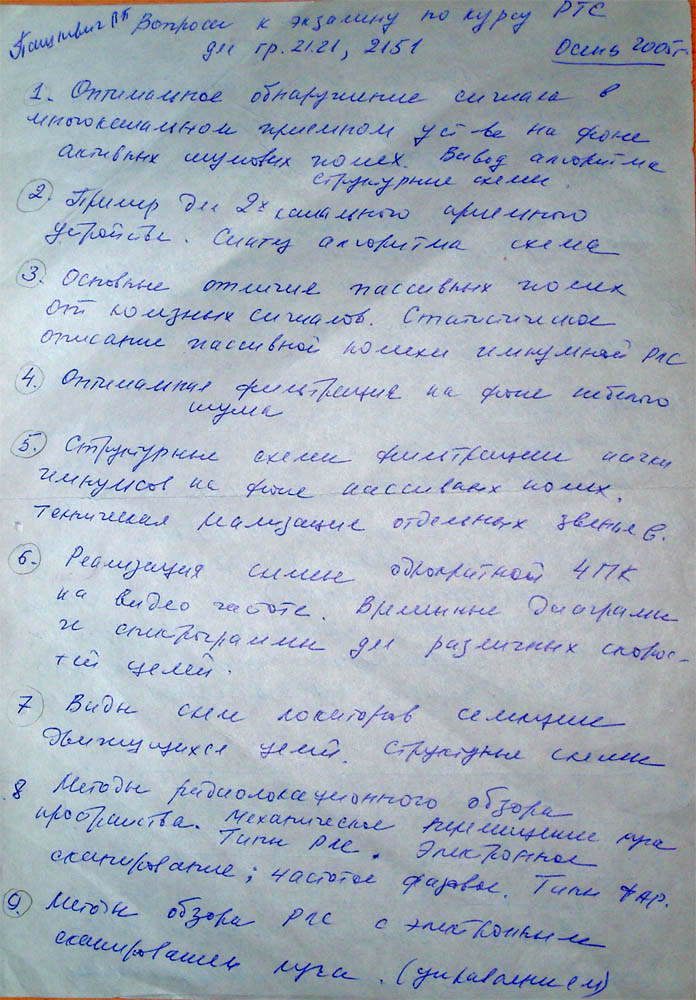 Вопросы к экзамену по курсу РТС
для гр. 2121, 2151 Осень 2005г.
1. Оптимальное обнаружение сигнала в
многоканальном приемном устр-ве на фоне
активных шумовых помех. Вывод алгоритма
структурные схемы.
2. Пример для 2х канального приемного
устройства. Синтез алгоритма схема
3. Основные отличия пассивных помех
от полезных сигналов. Статистическое
описание пассивной помехи импульсной РЛС
4. Оптимальная фильтрация на фоне небелого
шума
5. Структурные схемы фильтрации пачки
импульсов на фоне пассивных помех.
Техническая реализация отдельных звеньев.
6. Реализация схемы однократной ЧПК
на видео частоте. Временные диаграммы
и спектрограммы для различных скорос-
тей целей.
7 Виды схем локаторов селекции
движущихся целей. Структурные схемы
8 Методы радиолокационного обзора
пространства. Механическое перемещение луча
Типы РЛС. Электронное
сканирование; частотое фазовое. Типы ФАР.
9. Методы обзора РЛС с электронным
сканированием луча. (управлением)